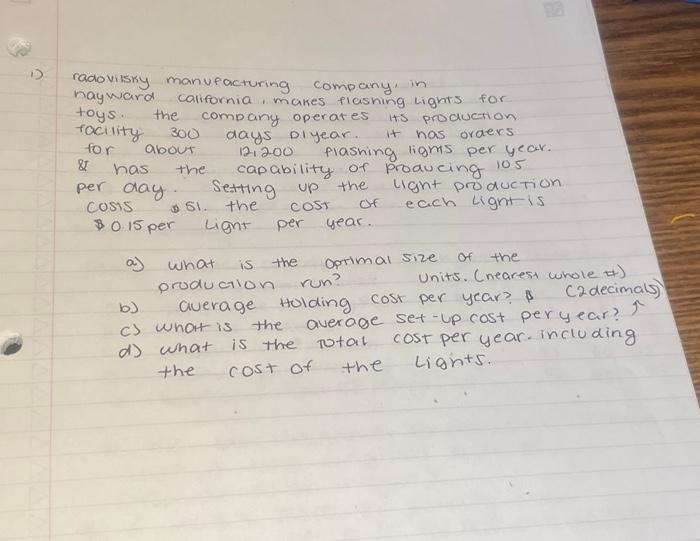 1) radovilsky manufacturing company, in
hayward california, makes flashing lights for
toys. the company operates its production
facility 300 days p/year. it has orders
for about 12,200 flashing lights per year.
& has the capability of producing 105
per day. Setting up the light production
costs $51. the cost of each light is
$0.15 per light per year.
a) what is the optimal size of the
production run? units. (nearest whole #)
b) average Holding cost per year? $ (2 decimals)
c) what is the average set-up cost per year? ↑
d) what is the total cost per year. including
the cost of the lights.